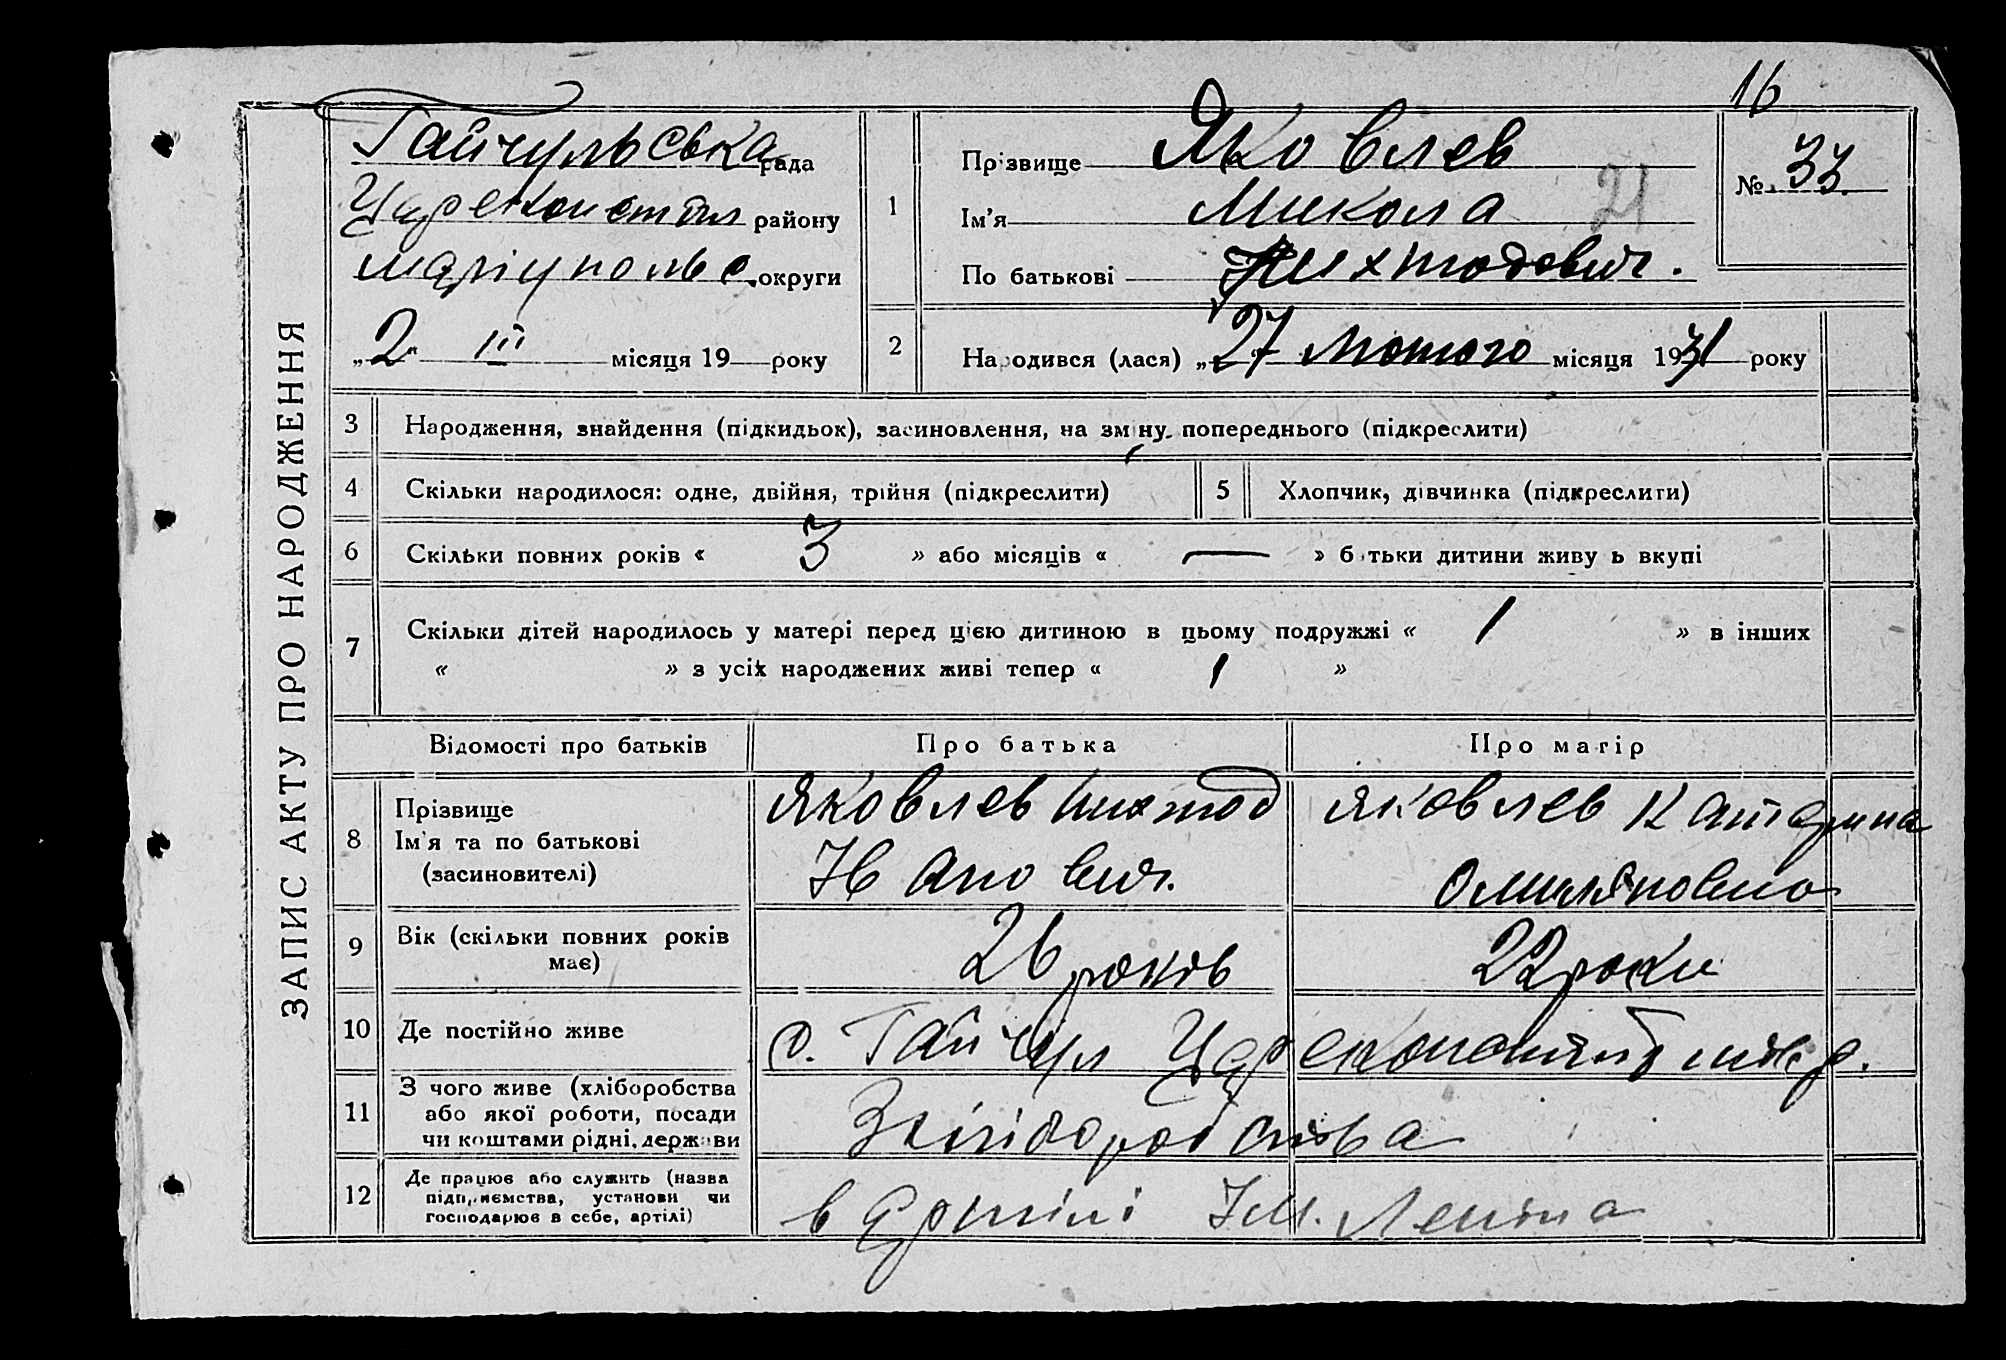 16
ЗАПИС АКТУ ПРО НАРОДЖЕННЯ
Гайчульська рада
Цареконстан району
маріупольс. округи
„2“ III місяця 19 року
1
Прізвище Яковлев
Ім'я Микола
21
По батькові Нихтодович.
№ 33.
2 Народився (лася) „27“ Лютого місяця 1931 року
3 Народження, знайдення (підкидьок), засиновлення, на зміну попереднього (підкреслити)
4 Скільки народилося: одне, двійня, трійня (підкреслити)
5 Хлопчик, дівчинка (підкреслити)
6 Скільки повних років « 3 » або місяців « — » батьки дитини живуть вкупі
7 Скільки дітей народилось у матері перед цією дитиною в цьому подружжі « 1 » в інших
« » з усіх народжених живі тепер « 1 »
Відомості про батьків
Про батька
Про матір
8 Прізвище
Ім'я та по батькові
(засиновителі)
Яковлев Нихтод
Иванович.
Яковлев Катерина
Омиляновна
9 Вік (скільки повних років
має)
26 років
22 роки
10 Де постійно живе
с. Гайчул Царе р.
11 З чого живе (хліборобства
або якої роботи, посади
чи коштами рідні, держави
З хліборобства
12 Де працює або служить (назва
підприємства, установи чи
господарює в себе, артілі)
в Артілі Ім. Леніна